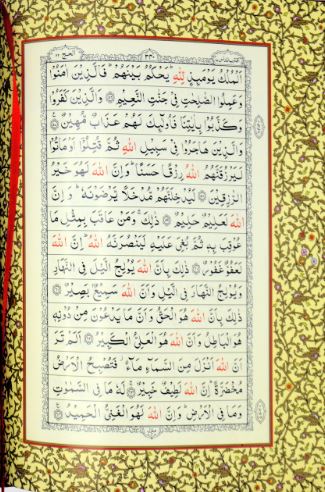 ٣٣٨
اَلْمُلْكُ يَوْمَئِذٍ لِلّٰهِ يَحْكُمُ بَيْنَهُمْ فَالَّذِينَ اٰمَنُوا
وَعَمِلُوا الصَّالِحَاتِ فِي جَنَّاتِ النَّعِيمِ ۝ وَالَّذِينَ كَفَرُوا
وَكَذَّبُوا بِاٰيَاتِنَا فَاُولٰئِكَ لَهُمْ عَذَابٌ مُهِينٌ ۝
وَالَّذِينَ هَاجَرُوا فِي سَبِيلِ اللّٰهِ ثُمَّ قُتِلُوا اَوْ مَاتُوا
لَيَرْزُقَنَّهُمُ اللّٰهُ رِزْقًا حَسَنًا وَاِنَّ اللّٰهَ لَهُوَ خَيْرُ
الرَّازِقِينَ ۝ لَيُدْخِلَنَّهُمْ مُدْخَلًا يَرْضَوْنَهُ وَاِنَّ
اللّٰهَ لَعَلِيمٌ حَلِيمٌ ۝ ذٰلِكَ وَمَنْ عَاقَبَ بِمِثْلِ مَا
عُوقِبَ بِهِ ثُمَّ بُغِيَ عَلَيْهِ لَيَنْصُرَنَّهُ اللّٰهُ اِنَّ اللّٰهَ
لَعَفُوٌّ غَفُورٌ ۝ ذٰلِكَ بِاَنَّ اللّٰهَ يُولِجُ الَّيْلَ فِي النَّهَارِ
وَيُولِجُ النَّهَارَ فِي الَّيْلِ وَاَنَّ اللّٰهَ سَمِيعٌ بَصِيرٌ ۝
ذٰلِكَ بِاَنَّ اللّٰهَ هُوَ الْحَقُّ وَاَنَّ مَا يَدْعُونَ مِنْ دُونِهِ
هُوَ الْبَاطِلُ وَاَنَّ اللّٰهَ هُوَ الْعَلِيُّ الْكَبِيرُ ۝ اَلَمْ تَرَ
اَنَّ اللّٰهَ اَنْزَلَ مِنَ السَّمَاءِ مَاءً فَتُصْبِحُ الْاَرْضُ
مُخْضَرَّةً اِنَّ اللّٰهَ لَطِيفٌ خَبِيرٌ ۝ لَهُ مَا فِي السَّمٰوَاتِ
وَمَا فِي الْاَرْضِ وَاِنَّ اللّٰهَ لَهُوَ الْغَنِيُّ الْحَمِيدُ ۝